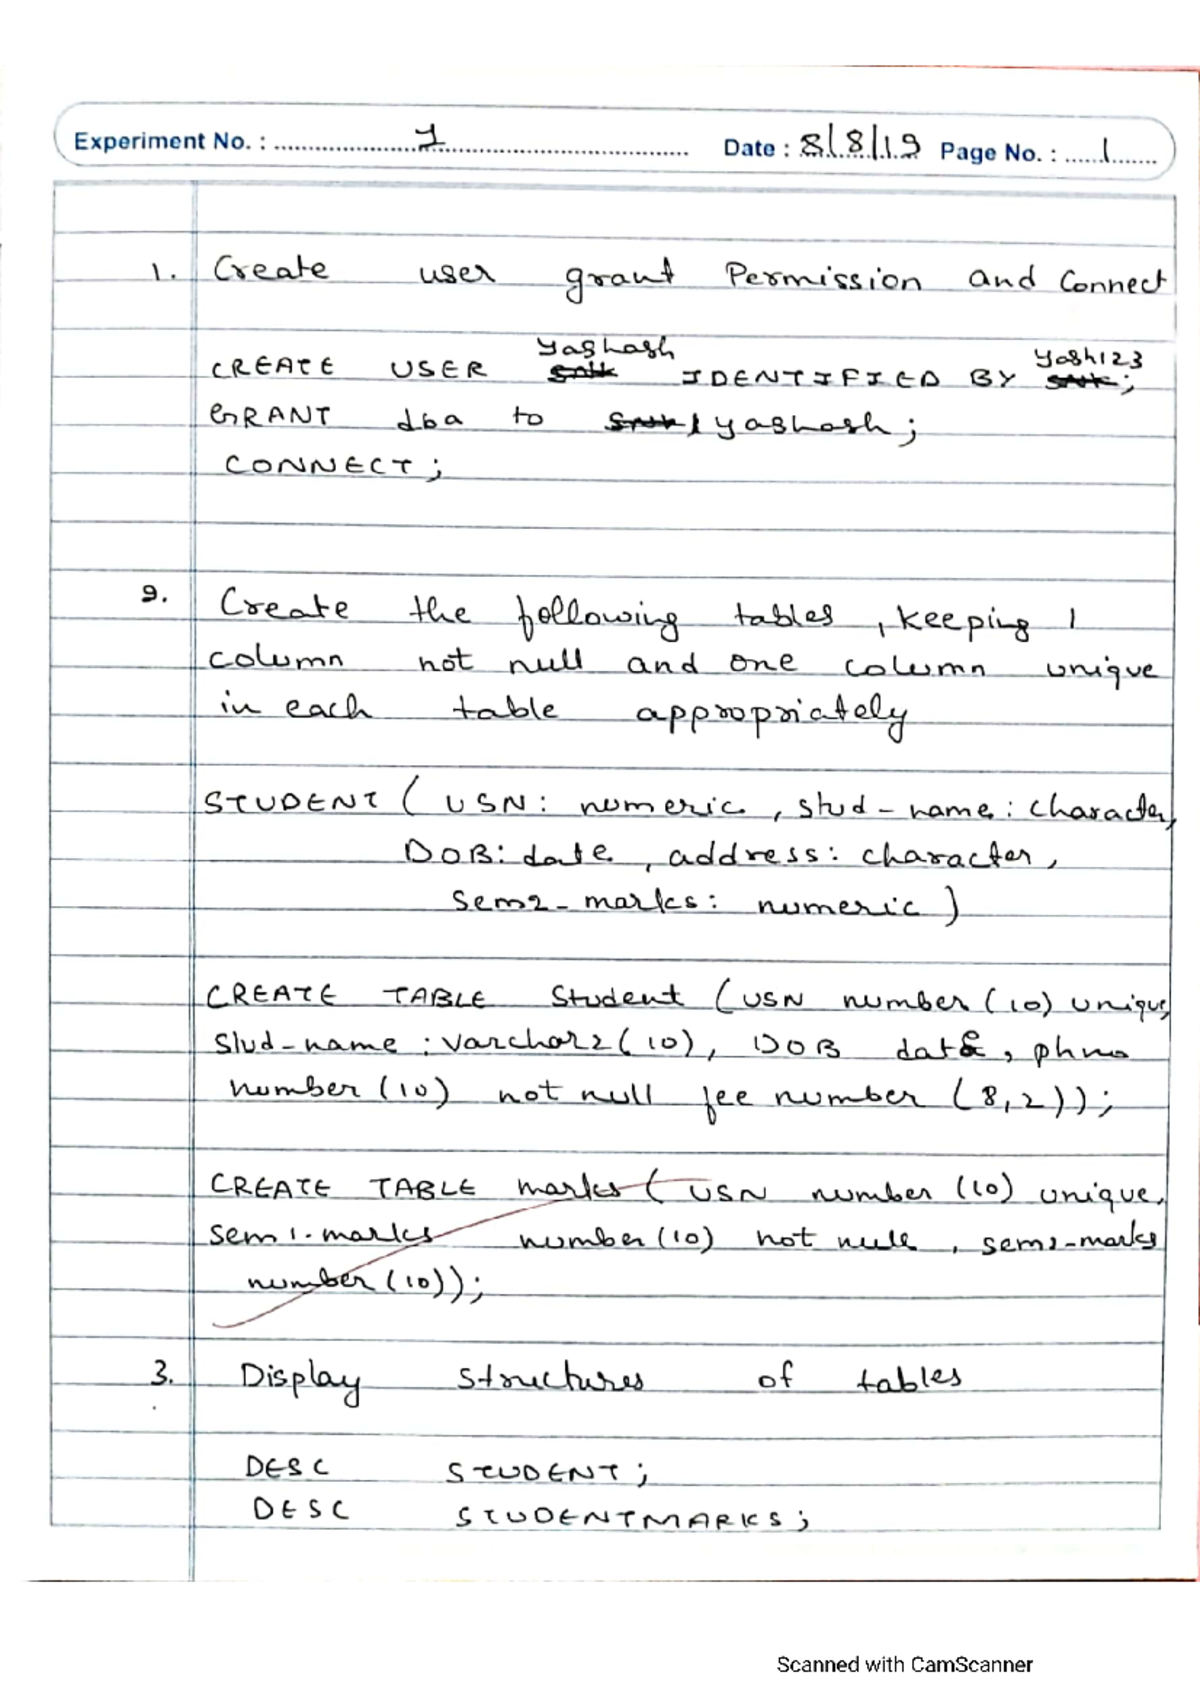 Experiment No. : 1 Date : 8/8/19 Page No. : 1
1. Create user grant Permission and Connect
yashash yash123
CREATE USER IDENTIFIED BY ;
GRANT dba to yashash;
CONNECT;
2. Create the following tables, keeping 1
column not null and one column unique
in each table appropriately
STUDENT ( USN: numeric, stud-name: character,
DOB: date, address: character,
sem2-marks: numeric )
CREATE TABLE Student (USN number(10) unique,
stud-name : varchar2(10), DOB date, phno
number(10) not null fee number (8,2));
CREATE TABLE marks ( USN number (10) unique,
sem1-marks number(10) not null, sem2-marks
number(10));
3. Display structures of tables
DESC STUDENT;
DESC STUDENTMARKS;
Scanned with CamScanner